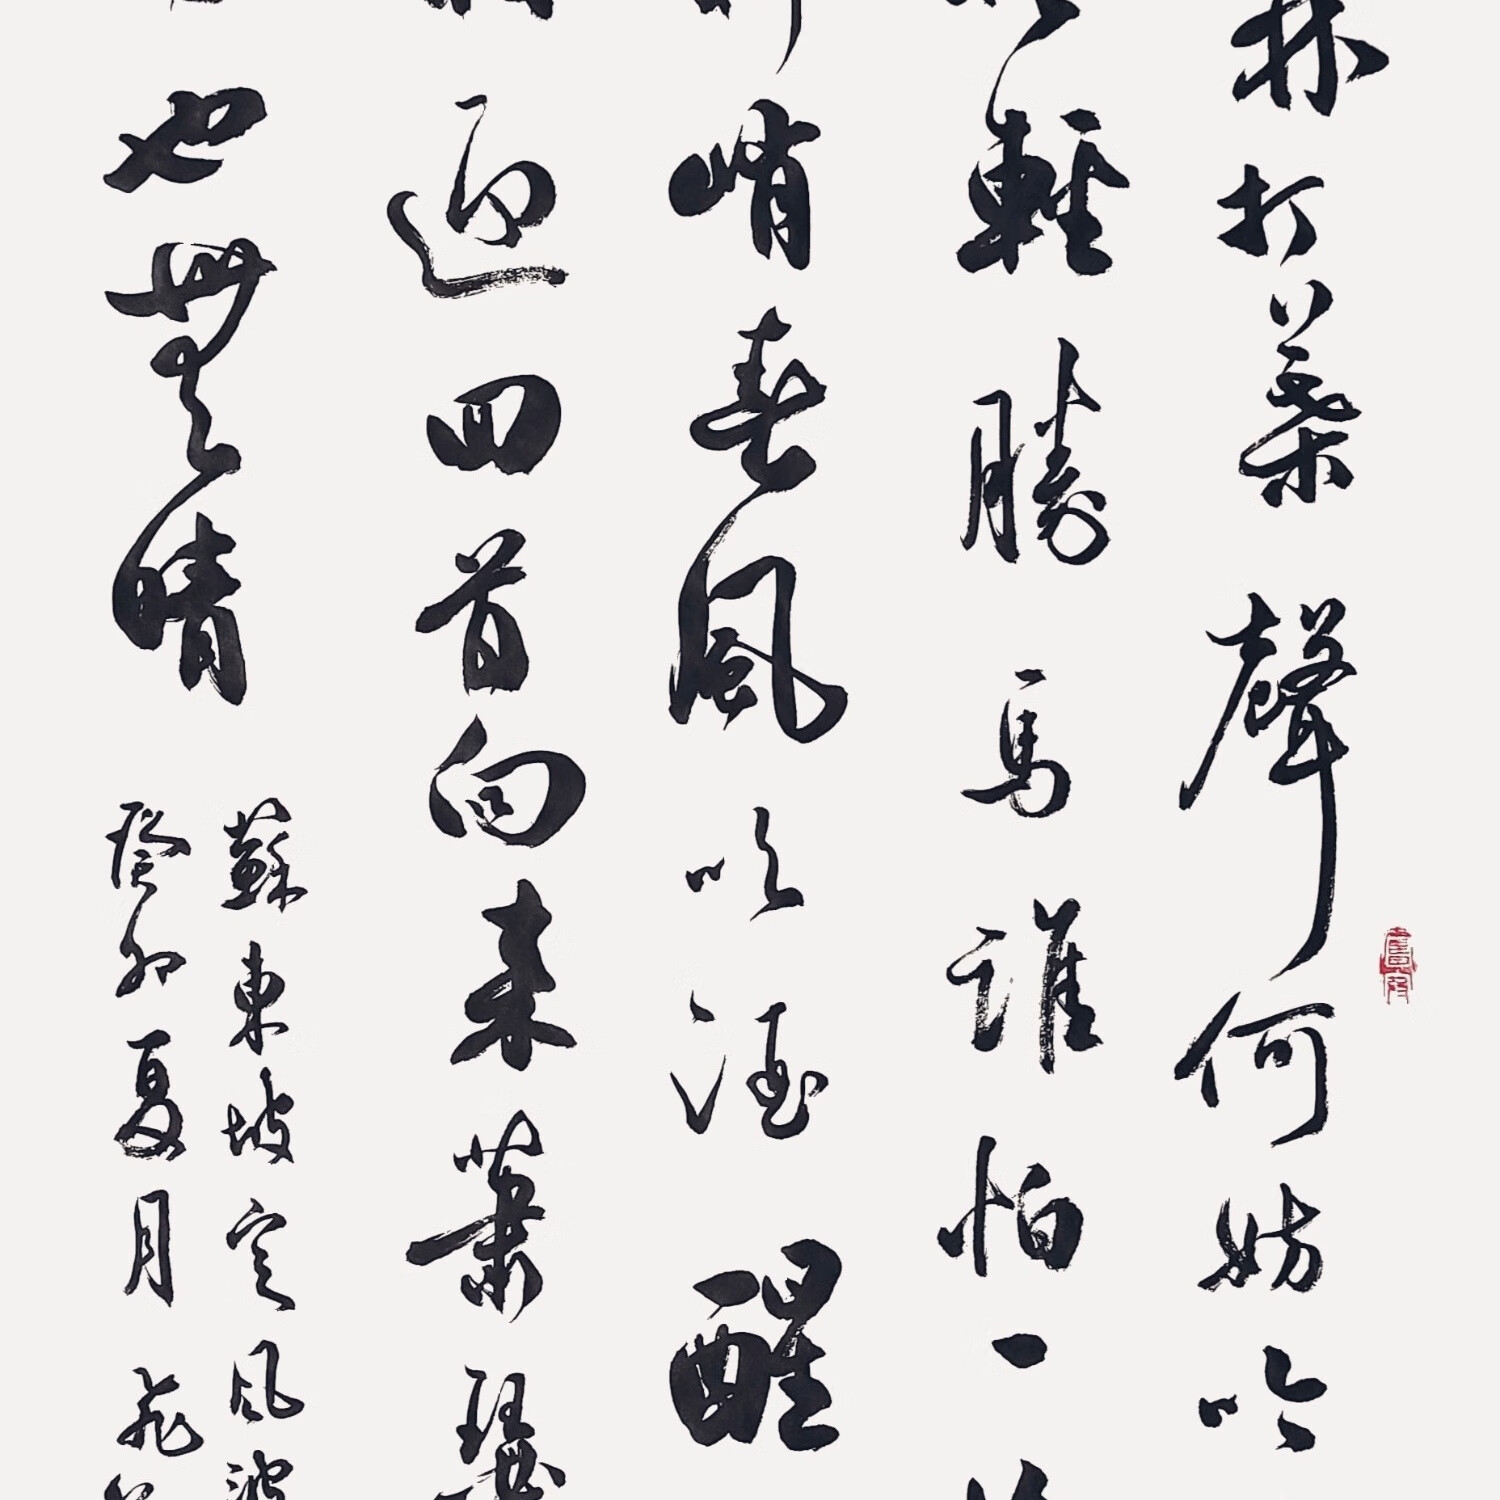 林打葉聲何妨吟
輕勝馬誰怕一
峭春風吹酒醒
迎回首向来蕭瑟
也無晴
蘇東坡定風波
癸卯夏月飛